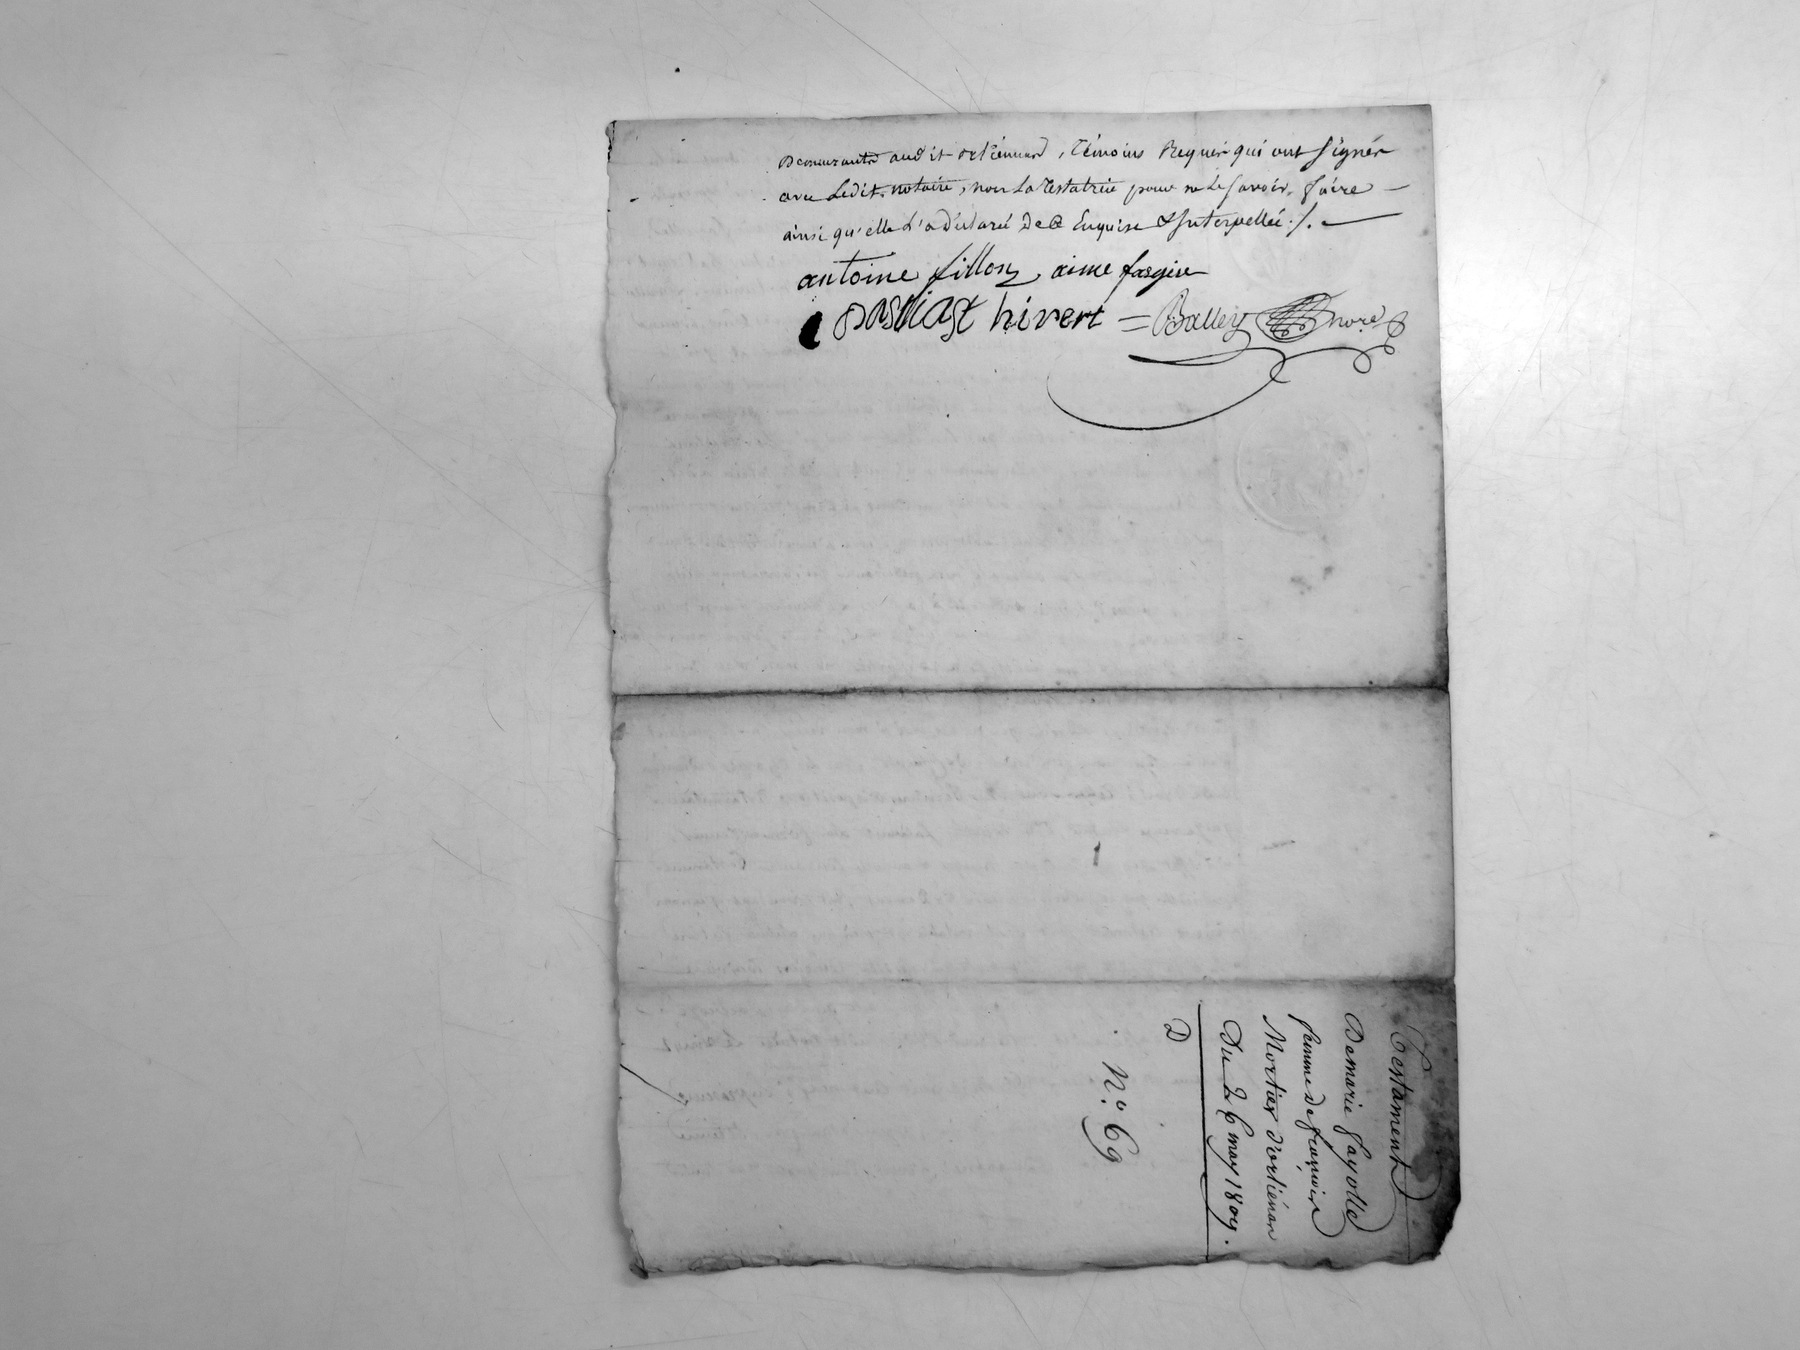 Demeurants audit ortiénard, témoins Requis qui ont signés
avec Ledit notaire, non La testatrice pour ne Le savoir faire —
ainsi qu'elle l'a déclaré De ce Enquise & Interpellée ./. —
antoine fillon aime
hivert = Balley nore
Testament
De marie fayolle
femme de françois
Mortier d'ortiénar
Du 26 may 1809.
D
N.o 69